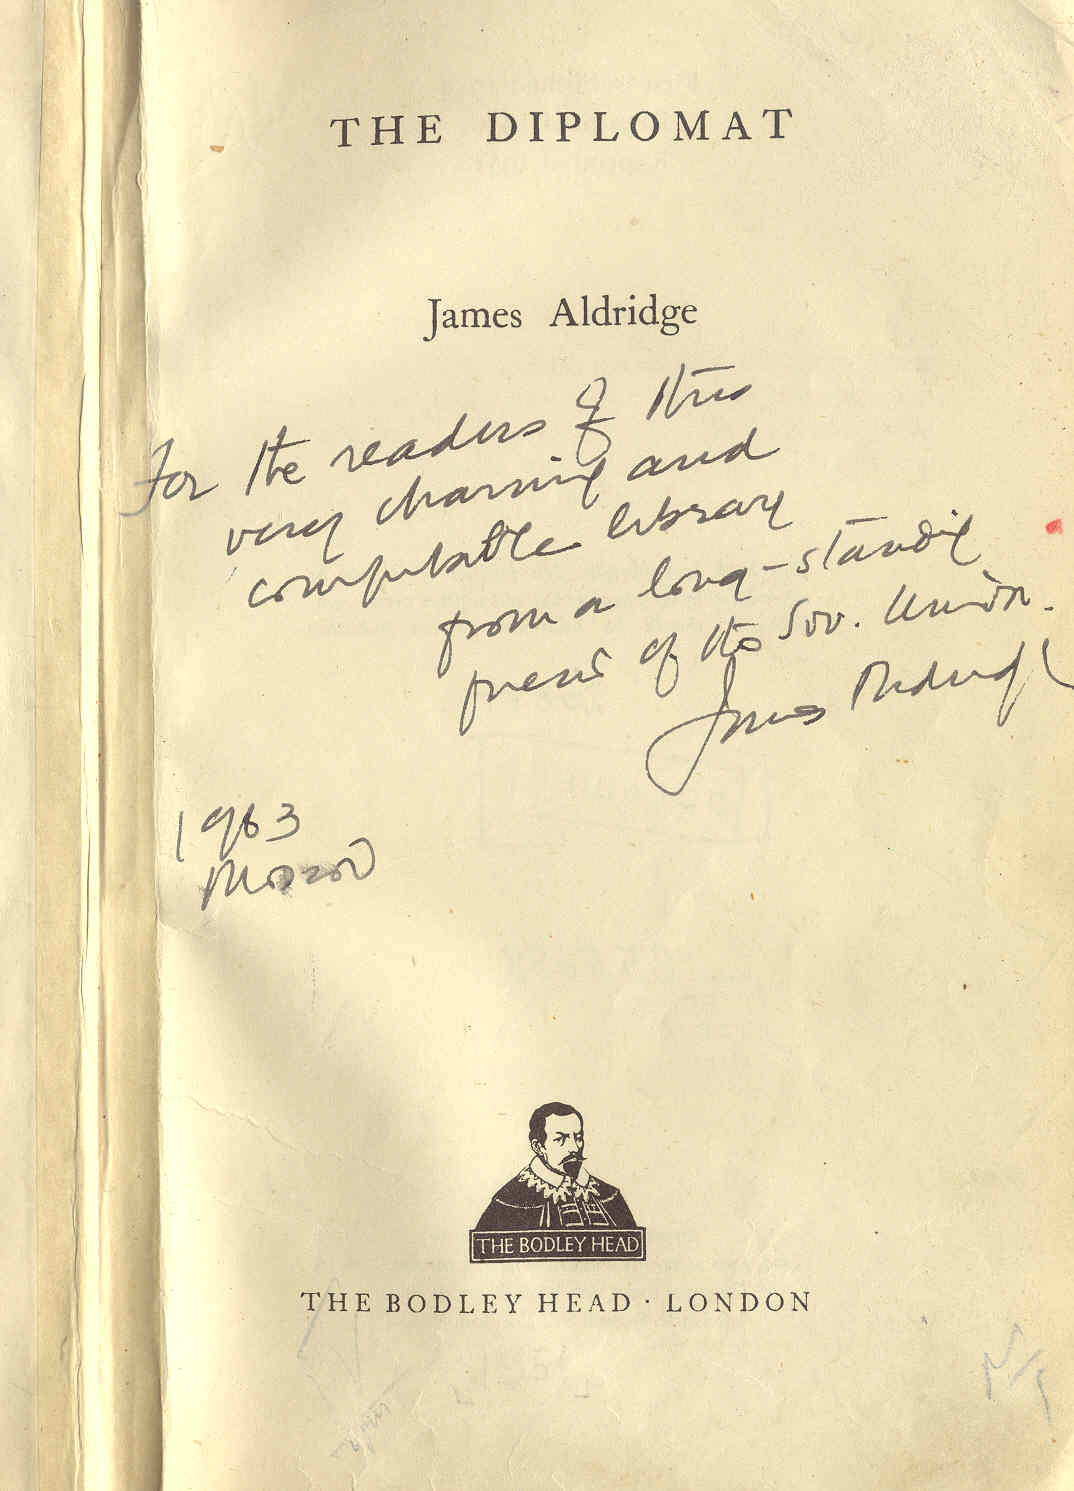 THE DIPLOMAT
James Aldridge
For the readers of this
very charming and
comfortable library
from a long-standing
friend of the Sov. Union.
James Aldridge
1963
Moscow
THE BODLEY HEAD
THE BODLEY HEAD · LONDON